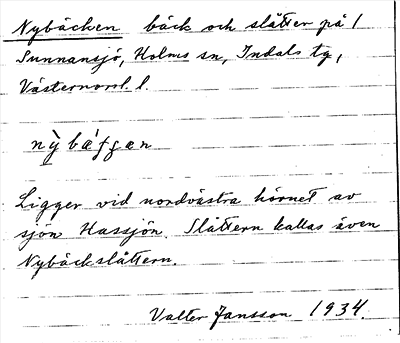 Nybäcken bäck och slåtter på /
Sunnansjö, Holms sn, Indals tg,
Västernorrl. l.
nỳbä́fgæn
Ligger vid nordvästra hörnet av
sjön Hassjön. Slåttern kallas även
Nybäckslåttern.
Valter Jansson 1934.